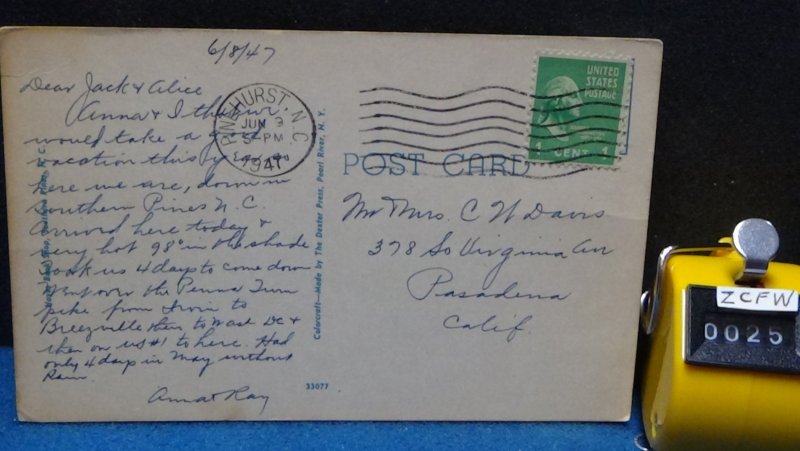 6/8/47
Dear Jack & Alice
Anna & I
would take a
vacation this year so
here we are, down in
Southern Pines N.C.
Arrived here today &
very hot 98° in the shade
took us 4 days to come down
Went over the Penna Turn
pike from Irwin to
Breezville then to Wash DC &
then on us #1 to here. Had
only 4 days in May without
Rain.
Anna & Ray
Colorcraft—Made by The Dexter Press, Pearl River, N. Y.
33077
PINEHURST, N.C.
JUN 9
5-PM
1947
UNITED
STATES
POSTAGE
1 CENT 1
POST CARD
Mr Mrs. C W Davis
378 So Virginia Av
Pasadena
Calif.
ZCFW
0025